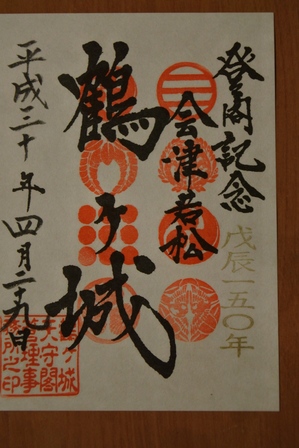 登閣記念
戊辰一五〇年
会津若松
鶴ヶ城
平成三十年四月二十九日
鶴ヶ城
天守閣
管理事
務所之印